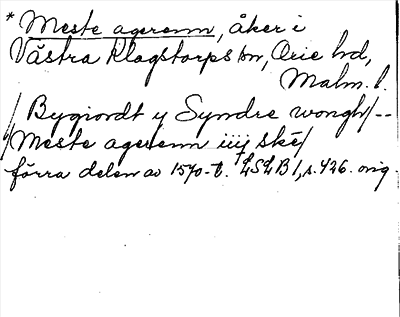 * Meste agerenn, åker i
Västra Klagstorps sn, Oxie hd,
Malm. l.
/ Bygiordt y Syndre wongh/--
/Meste agerenn iiij ske/
förra delen av 1570-t. LSLB 1, s. 426. orig.